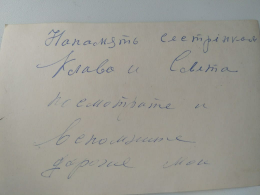 На память сестричкам
Клава и Света
посмотрите и
вспомните
дорогие мои